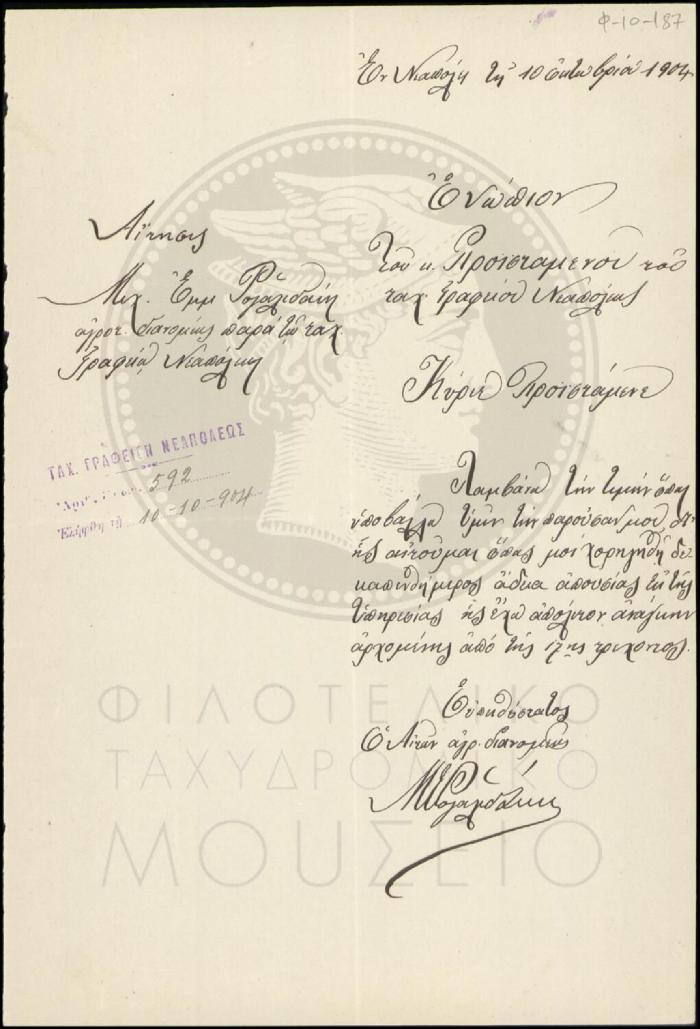 Φ-10-187
Ἐν Νεαπόλει τῇ 10 ὀκτωβρίου 1904
Ἐνώπιον
Τοῦ κ. Προϊσταμένου τοῦ
ταχ. Γραφείου Νεαπόλεως
Αἴτησις
Μιχ. Ἐμμ
ἀγροτ. διανομέως παρὰ τῷ ταχ.
Γραφείῳ Νεαπόλεως
Κύριε Προϊστάμενε
ΤΑΧ. ΓΡΑΦΕΙΟΝ ΝΕΑΠΟΛΕΩΣ
592
Ἐλήφθη τῇ 10-10-904
Λαμβάνω τὴν τιμὴν ὅπως
ὑποβάλλω ὑμῖν τὴν παροῦσαν μου, δι'
ἧς αἰτοῦμαι ὅπως μοὶ χορηγηθῇ δε
καπενθήμερος ἄδεια ἀπουσίας ἐκ τῆς
ὑπηρεσίας ἧς ἔχω ἀπόλυτον ἀνάγκην
ἀρχομένης ἀπὸ τῆς
Εὐπειθέστατος
Ὁ Αἰτῶν ἀγρ. διανομεύς
ΦΙΛΟΤΕΛΙΚΟ
ΤΑΧΥΔΡΟΜΙΚΟ
ΜΟΥΣΕΙΟ